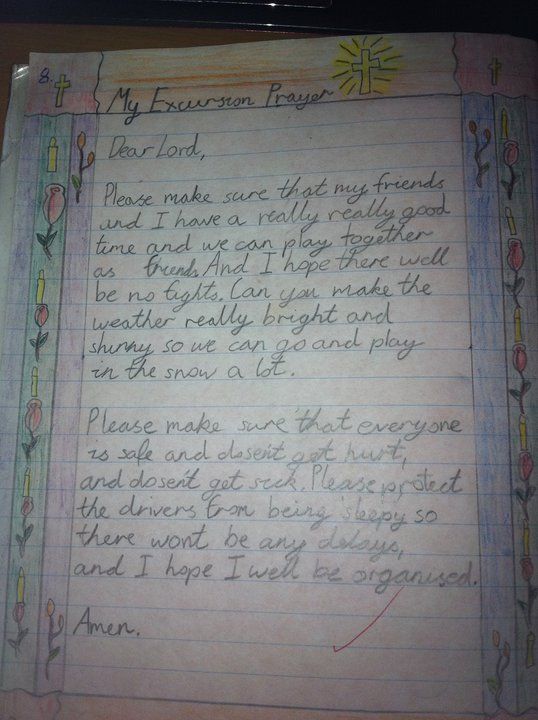 8.
My Excursion Prayer
Dear Lord,
Please make sure that my friends
and I have a really really good
time and we can play together
as friends. And I hope there well
be no fights. Can you make the
weather really bright and
shinny so we can go and play
in the snow a lot.
Please make sure that everyone
is safe and dosen't get hurt,
and dosen't get sick. Please protect
the drivers from being sleepy so
there wont be any delays,
and I hope I well be organised.
Amen.